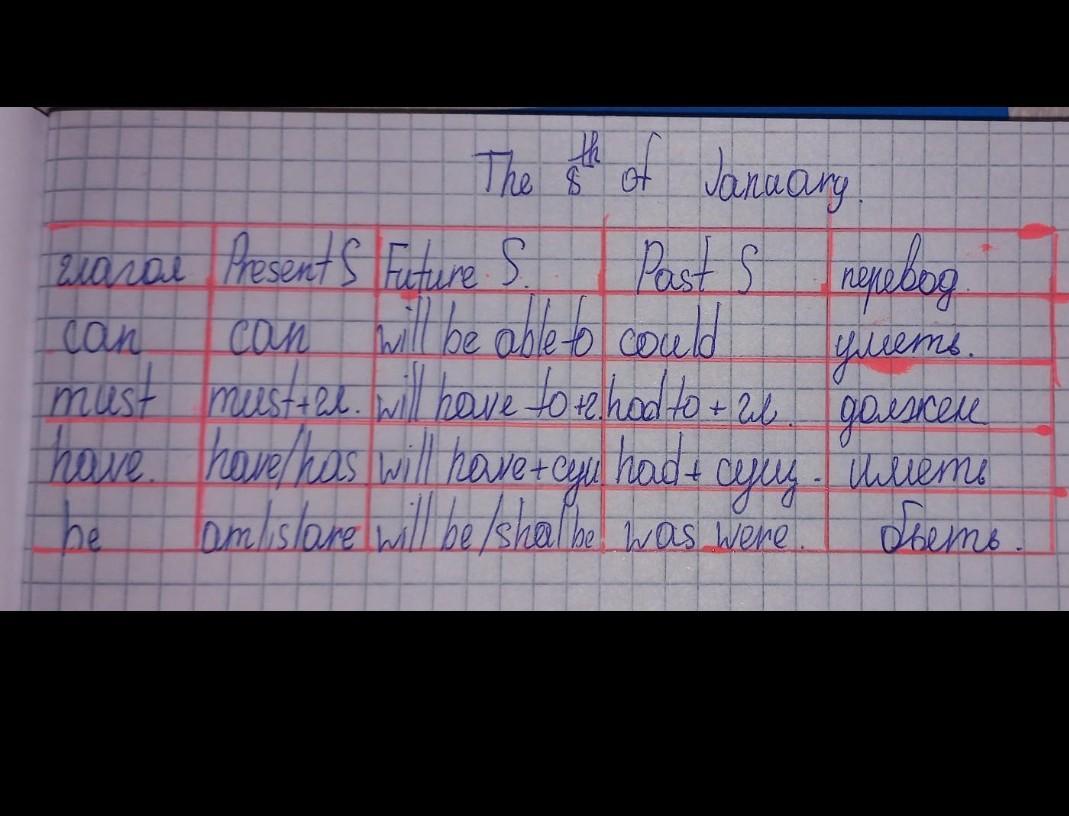 The 8th of January.
глагол Present S Future S. Past S перевод.
can can will be able to could уметь.
must must+гл. will have to+г. had to + гл. должен
have. have/has will have+сущ had+ сущ. иметь
be am/is/are will be/shal be was were. быть.